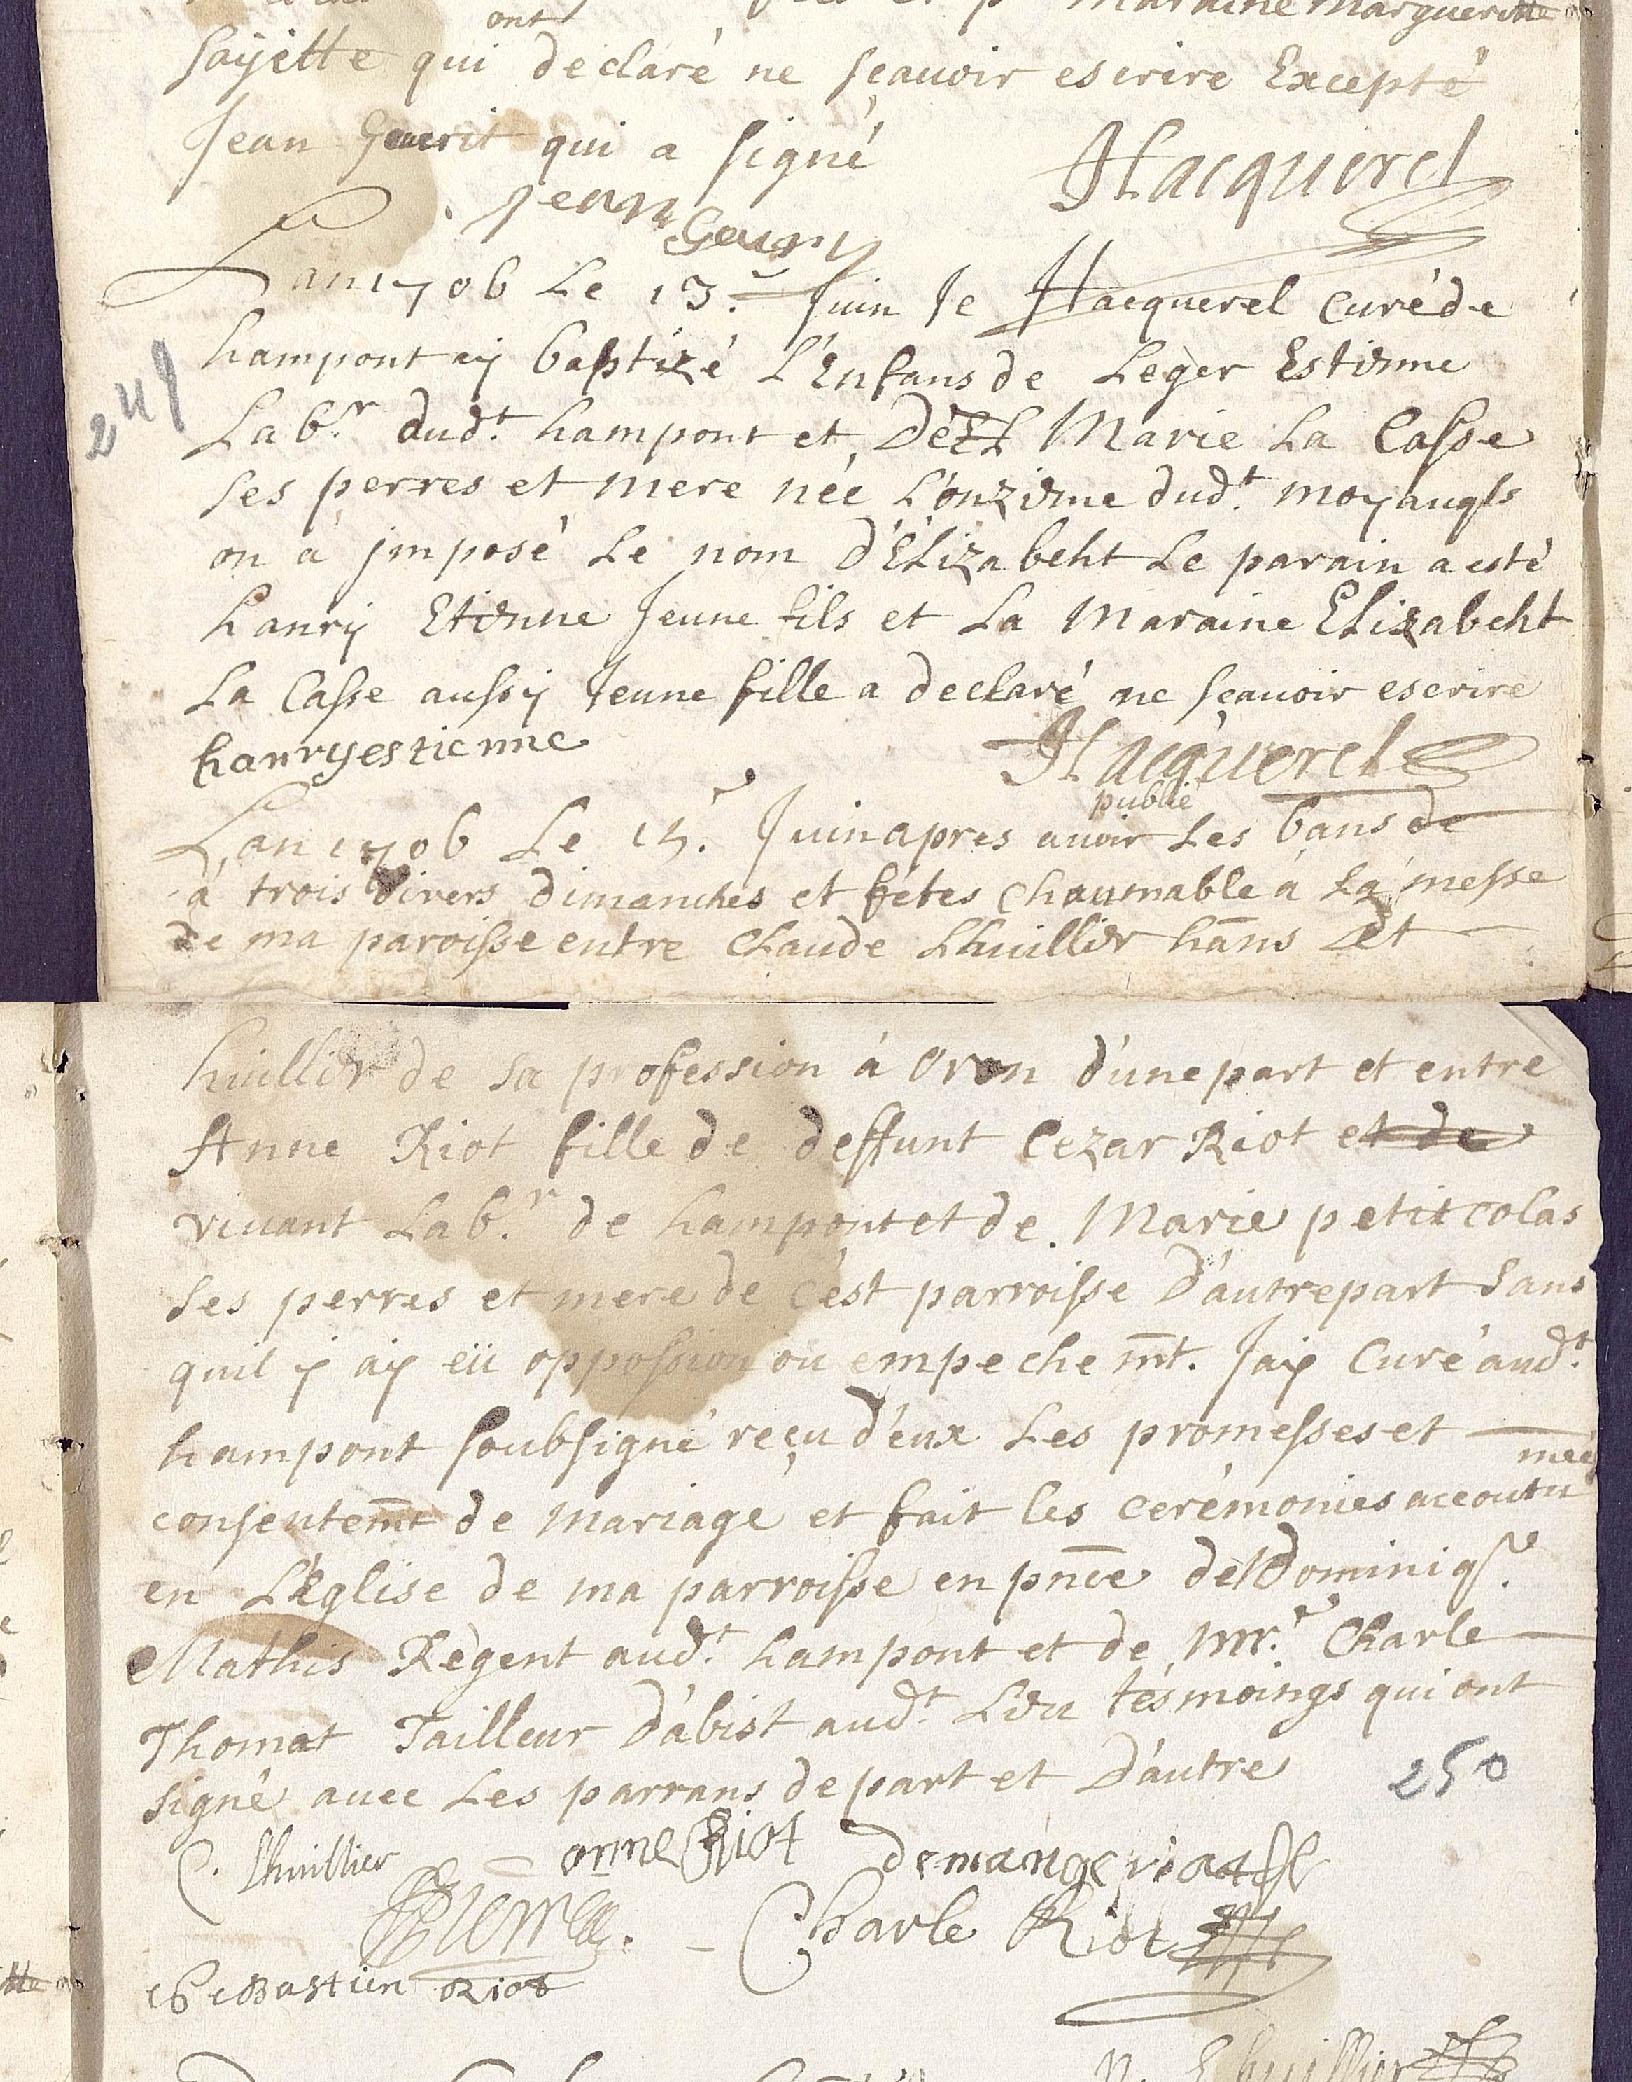 maraine margueritte
ont
fayette qui declaré ne sçauoir escrire Excepté
Jean Gouerit qui a signé
Hacquerel
Jean
Lan 1706 Le 13.e Juin Je Hacquerel curé de
hampont aÿ baptizé L'Enfans de Leger Estienne
Lab.r dud.t hampont et Marie La Casse
249
ses perres et mere née L'onzieme dud.t moy
on a jmposé Le nom d'Elizabeht Le parain a esté
hanrÿ Etienne Jeune fils et La Maraine Elizabeht
La Casse aussÿ Jeune fille a declaré ne sçauoir escrire
hanryestienne
Hacquerel
publié
Lan 1706 Le 15.e Juin apres auoir Les bans de
a trois divers dimanches et fétes chaumable a La messe
de ma paroisse entre Claude Lhuillier et
huillier de sa profession à Oron d'une part et entre
Anne Riot fille de deffunt Cezar Riot et de
viuant Lab.r de hampont et de Marie petit colas
ses perres et mere de c'est parroisse D'autre part sans
quil y aÿ eü opposiion ou empeche mt. Jaÿ Curé aud.t
hampont soubsigné reçu d'eux Les promesses et
meés
consentemt de mariage et fait les cerémonies accoutu
en L'église de ma parroisse en pnce de Dominiq.e
Mathis Régent aud.t hampont et de Mr.e Charle
Thomat Tailleur D'abist aud.t Lieu tésmoings qui ont
signé auec Les parrans de part et D'autre
250
C. Lhuillier anne Riot demange riat
Charle Riot
Sebastien Riot
N. Lhuillier